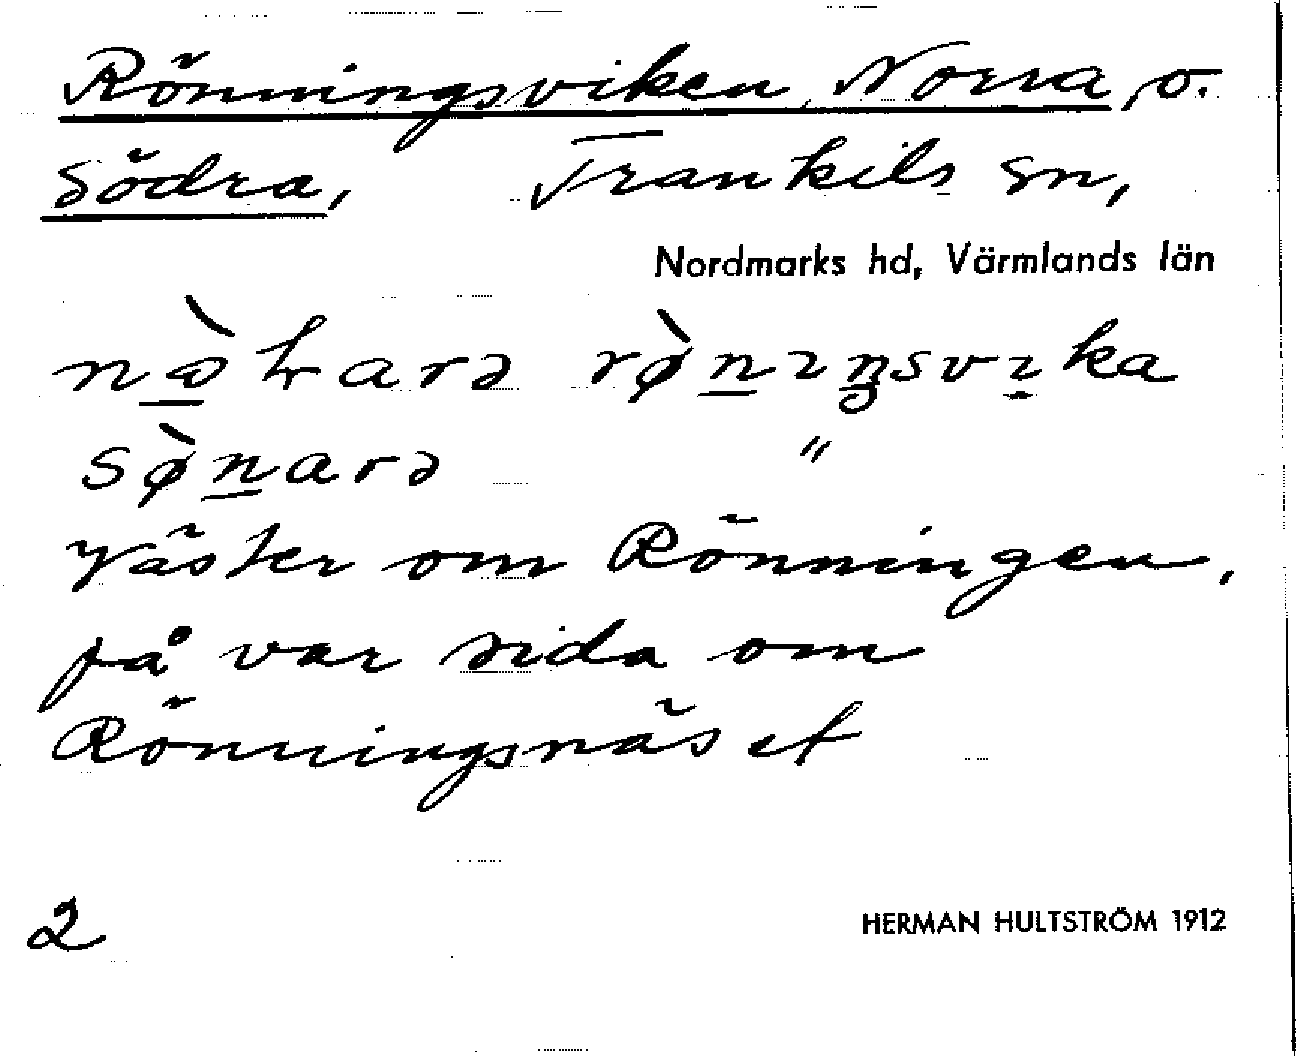 Rönningsviken, Norra, o.
Södra, Trankils sn,
Nordmarks hd, Värmlands län
sø̀narə "
Väster om Rönningen,
på var sida om
Rönningsnäset
2
HERMAN HULTSTRÖM 1912